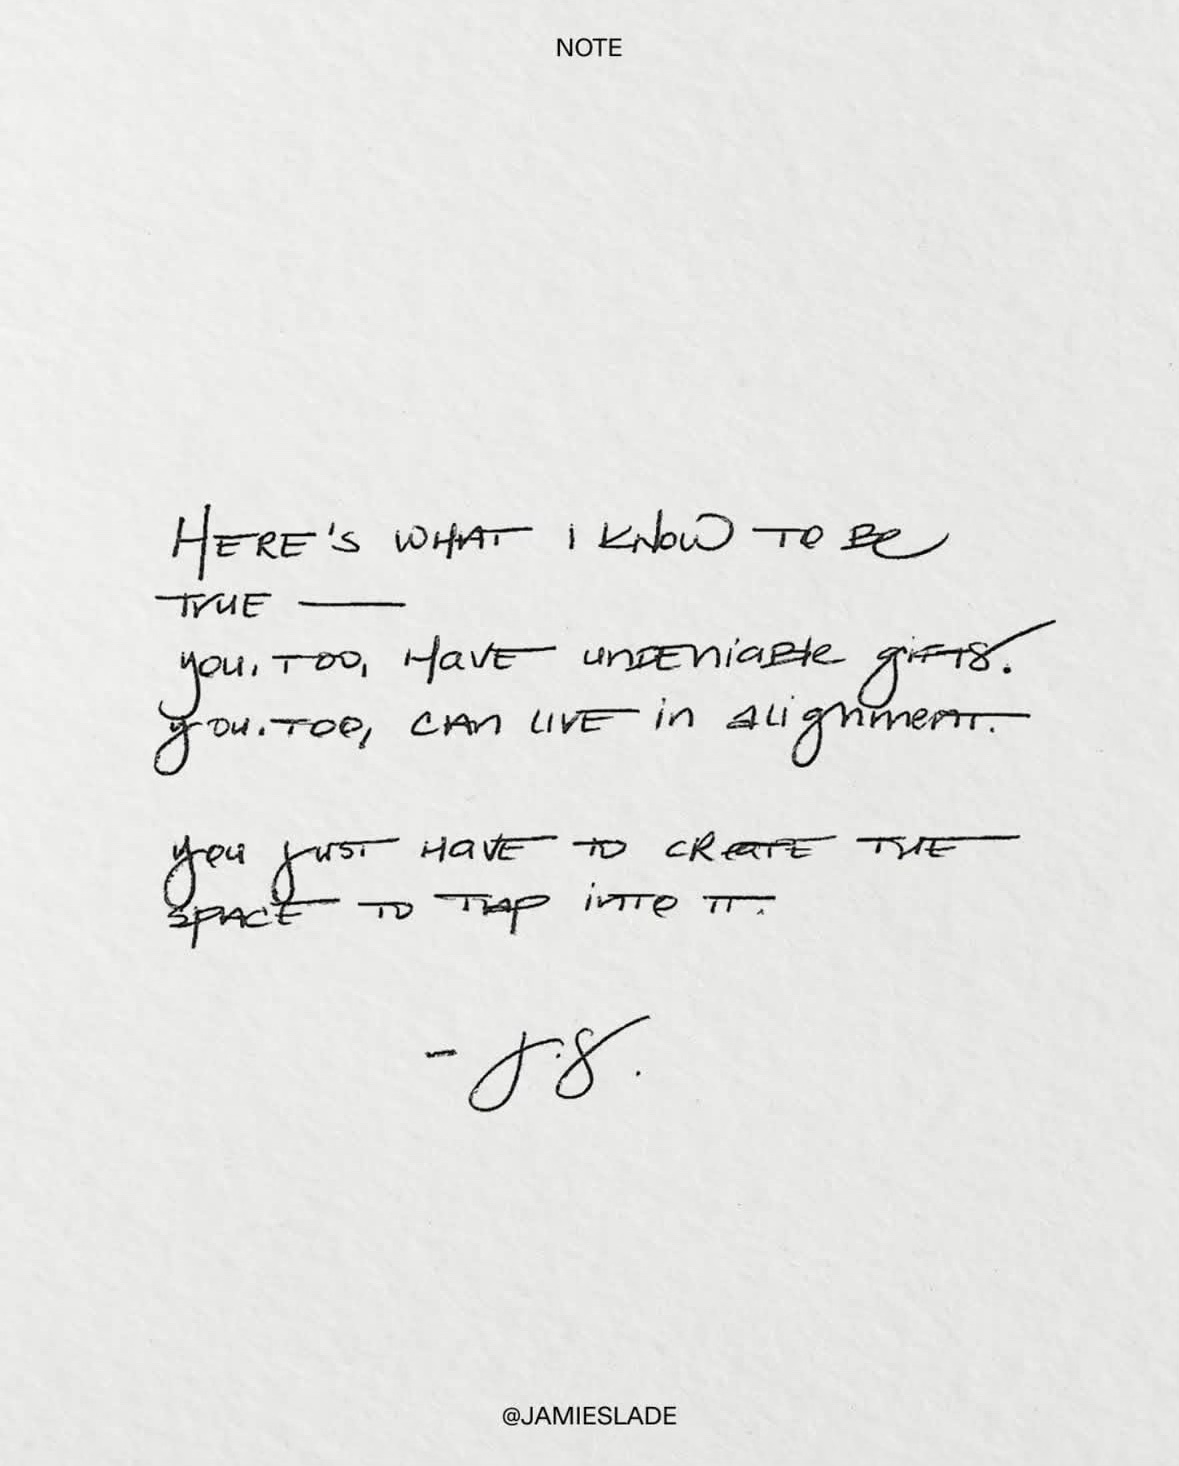 NOTE
HERE'S WHAT I KNOW TO BE
TRUE —
you, TOO, HAVE unDEniaBle gifTS.
you, TOO, CAN LIVE in alignmenT.
you jUST HAVE TO CReATE THE
SPACE TO TAP inTO IT.
- J.S.
@JAMIESLADE